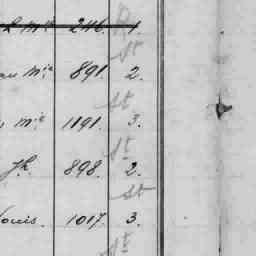 246. 1.
St
au Mie 891. 2.
St
Mie 1191. 3.
St
Jh. 898. 2.
St
Louis. 1017. 3.
St